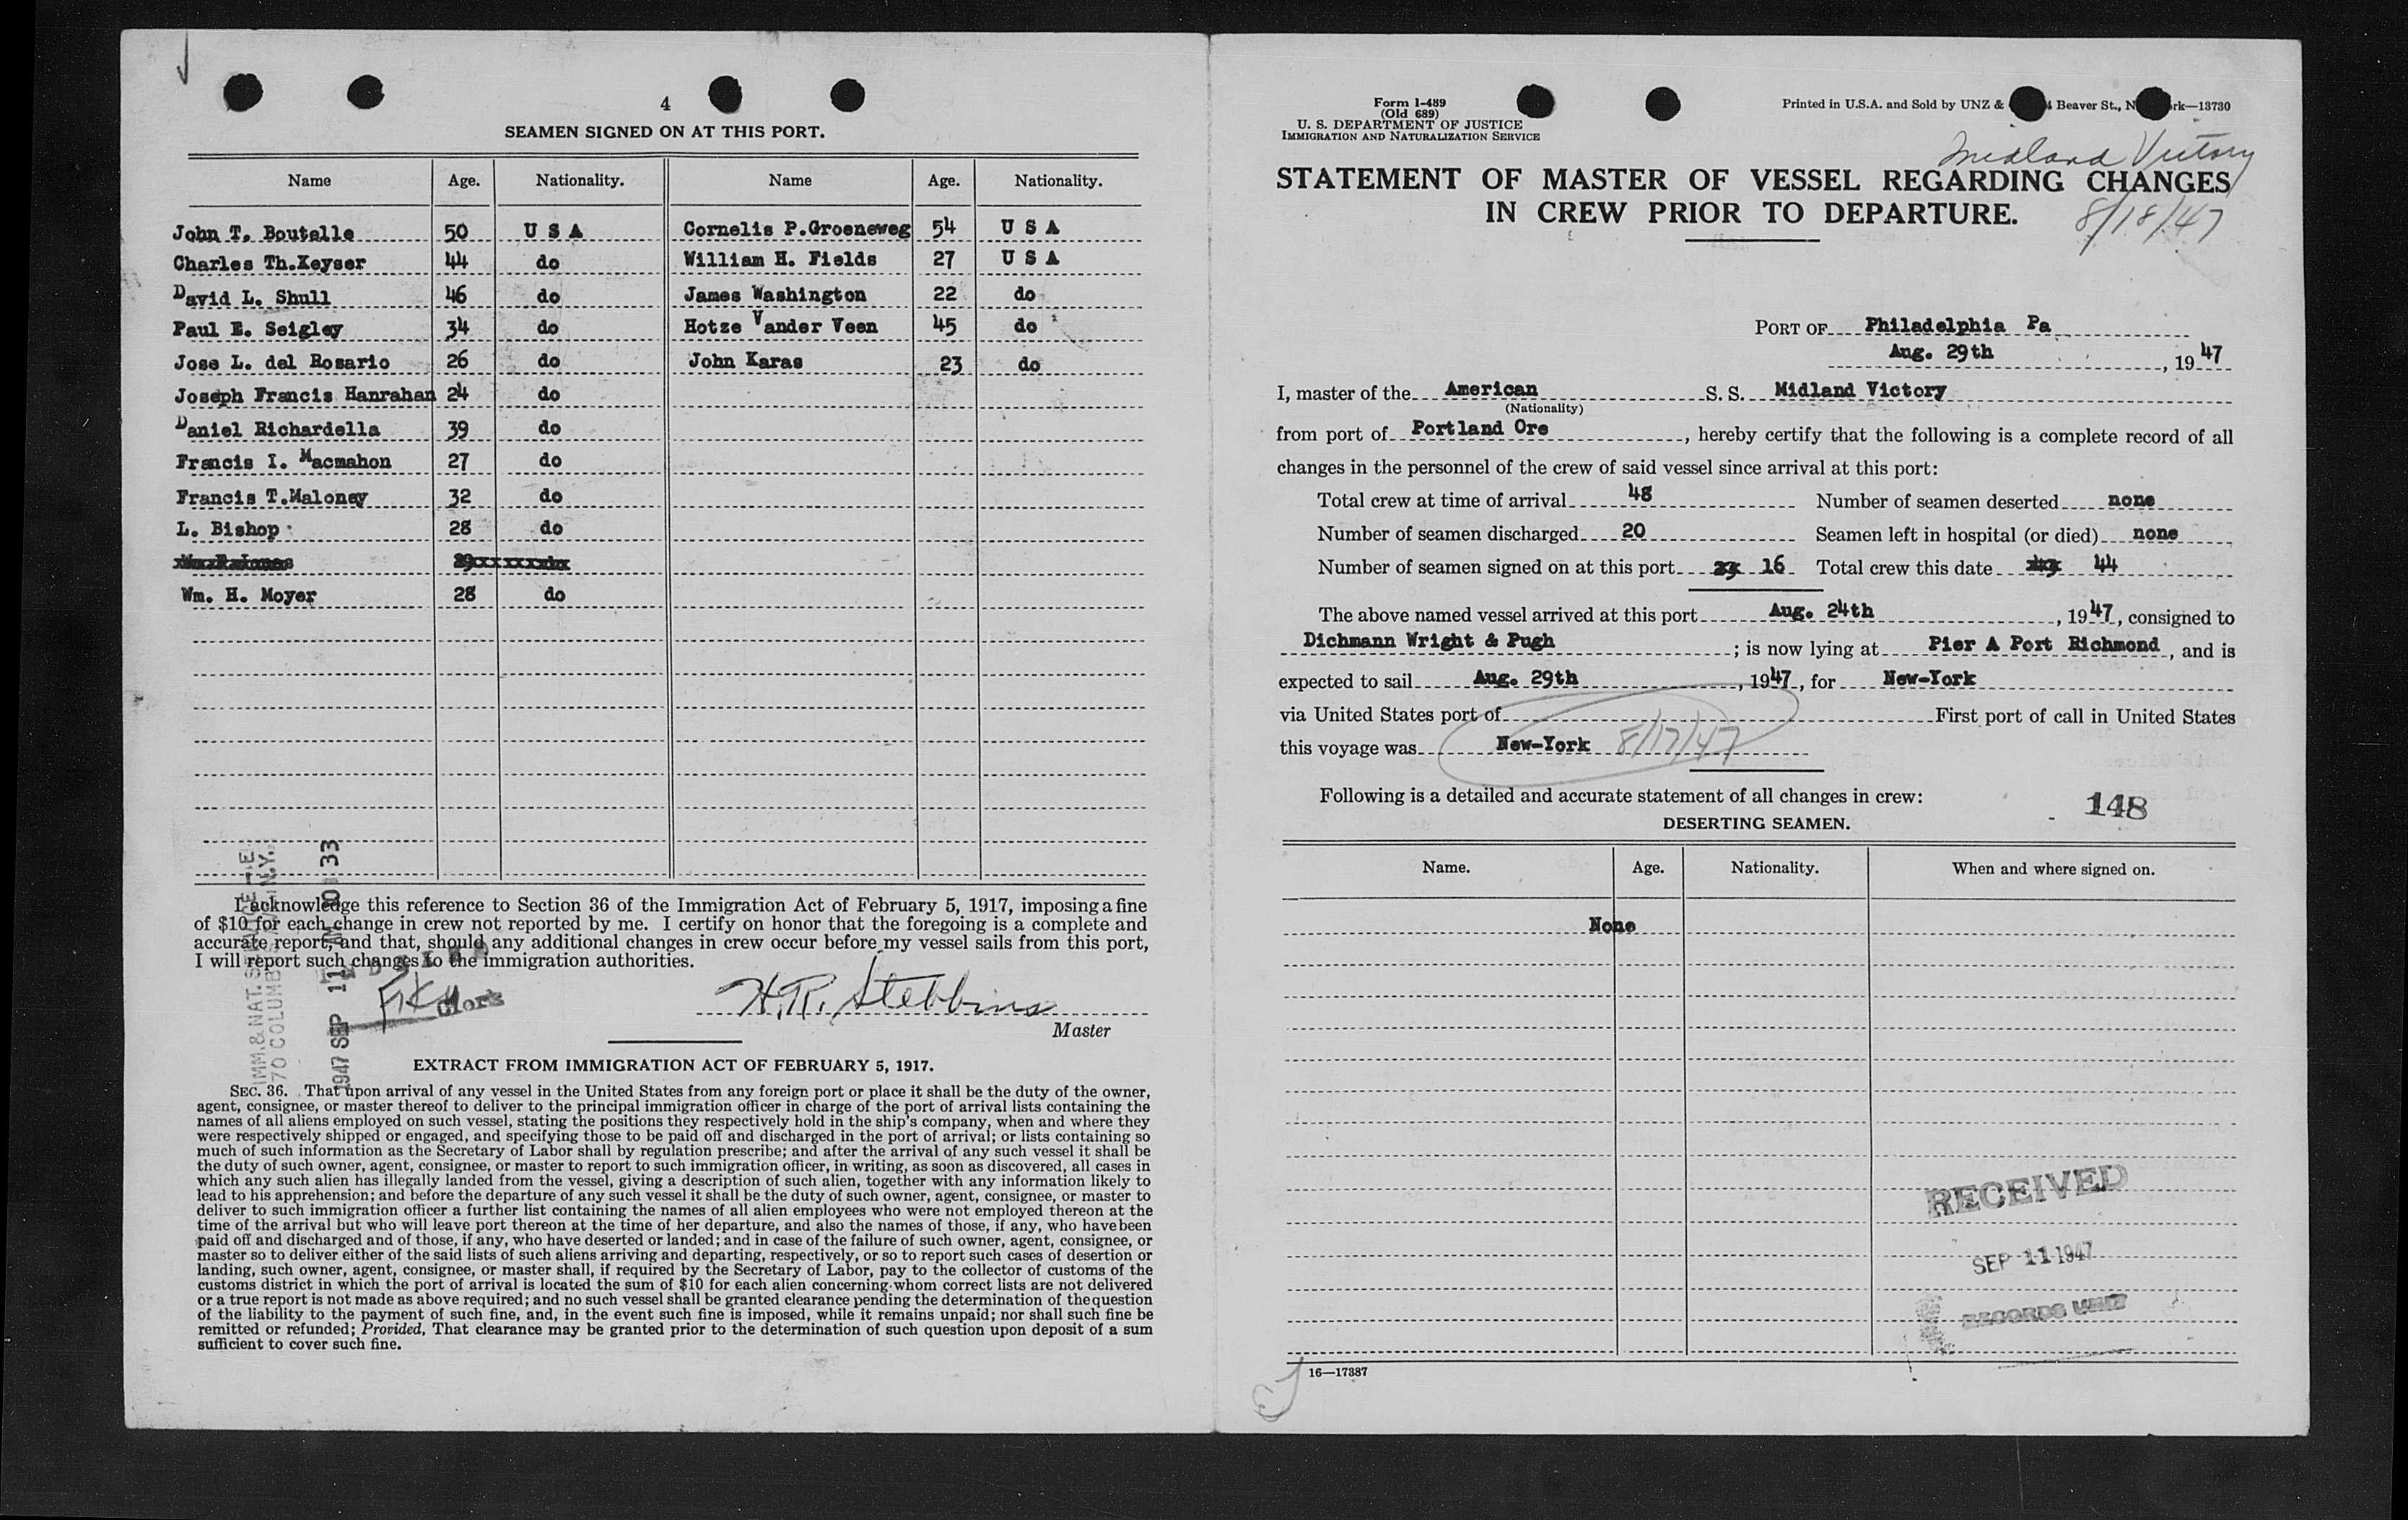 4
SEAMEN SIGNED ON AT THIS PORT.
Name Age. Nationality. Name Age. Nationality.
John T. Boutelle 50 U S A Cornelis P.Groeneweg 54 U S A
Charles Th.Keyser 44 do William H. Fields 27 U S A
David L. Shull 46 do James Washington 22 do
Paul E. Seigley 34 do Hotze Vander Veen 45 do
Jose L. del Rosario 26 do John Karas 23 do
Joseph Francis Hanrahan 24 do
Daniel Richardella 39 do
Francis I. Macmahon 27 do
Francis T.Maloney 32 do
L. Bishop 28 do
Wm. H. Moyer 28 do
I acknowledge this reference to Section 36 of the Immigration Act of February 5, 1917, imposing a fine
of $10 for each change in crew not reported by me. I certify on honor that the foregoing is a complete and
accurate report; and that, should any additional changes in crew occur before my vessel sails from this port,
I will report such changes to the immigration authorities.
H.R. Stebbins
Master
Clerk
IMM. & NAT. SERVICE
70 COLUMBUS AV. N.Y.
1947 SEP 11 AM 10 33
EXTRACT FROM IMMIGRATION ACT OF FEBRUARY 5, 1917.
SEC. 36. That upon arrival of any vessel in the United States from any foreign port or place it shall be the duty of the owner,
agent, consignee, or master thereof to deliver to the principal immigration officer in charge of the port of arrival lists containing the
names of all aliens employed on such vessel, stating the positions they respectively hold in the ship's company, when and where they
were respectively shipped or engaged, and specifying those to be paid off and discharged in the port of arrival; or lists containing so
much of such information as the Secretary of Labor shall by regulation prescribe; and after the arrival of any such vessel it shall be
the duty of such owner, agent, consignee, or master to report to such immigration officer, in writing, as soon as discovered, all cases in
which any such alien has illegally landed from the vessel, giving a description of such alien, together with any information likely to
lead to his apprehension; and before the departure of any such vessel it shall be the duty of such owner, agent, consignee, or master to
deliver to such immigration officer a further list containing the names of all alien employees who were not employed thereon at the
time of the arrival but who will leave port thereon at the time of her departure, and also the names of those, if any, who have been
paid off and discharged and of those, if any, who have deserted or landed; and in case of the failure of such owner, agent, consignee, or
master so to deliver either of the said lists of such aliens arriving and departing, respectively, or so to report such cases of desertion or
landing, such owner, agent, consignee, or master shall, if required by the Secretary of Labor, pay to the collector of customs of the
customs district in which the port of arrival is located the sum of $10 for each alien concerning whom correct lists are not delivered
or a true report is not made as above required; and no such vessel shall be granted clearance pending the determination of the question
of the liability to the payment of such fine, and, in the event such fine is imposed, while it remains unpaid; nor shall such fine be
remitted or refunded; Provided, That clearance may be granted prior to the determination of such question upon deposit of a sum
sufficient to cover such fine.
Form 1-489
(Old 689)
U. S. DEPARTMENT OF JUSTICE
IMMIGRATION AND NATURALIZATION SERVICE
Printed in U.S.A. and Sold by UNZ & Beaver St., N rk—13730
Midland Victory
STATEMENT OF MASTER OF VESSEL REGARDING CHANGES
IN CREW PRIOR TO DEPARTURE.
8/18/47
PORT OF Philadelphia Pa
Aug. 29th, 1947
I, master of the American S. S. Midland Victory
(Nationality)
from port of Portland Ore, hereby certify that the following is a complete record of all
changes in the personnel of the crew of said vessel since arrival at this port:
Total crew at time of arrival 48 Number of seamen deserted none
Number of seamen discharged 20 Seamen left in hospital (or died) none
Number of seamen signed on at this port 16 Total crew this date 44
The above named vessel arrived at this port Aug. 24th, 1947, consigned to
Dichmann Wright & Pugh; is now lying at Pier A Port Richmond, and is
expected to sail Aug. 29th, 1947, for New-York
via United States port of First port of call in United States
this voyage was New-York 8/17/47
Following is a detailed and accurate statement of all changes in crew:
148
DESERTING SEAMEN.
Name. Age. Nationality. When and where signed on.
None
RECEIVED
SEP 11 1947
RECORDS UNIT
16—17387